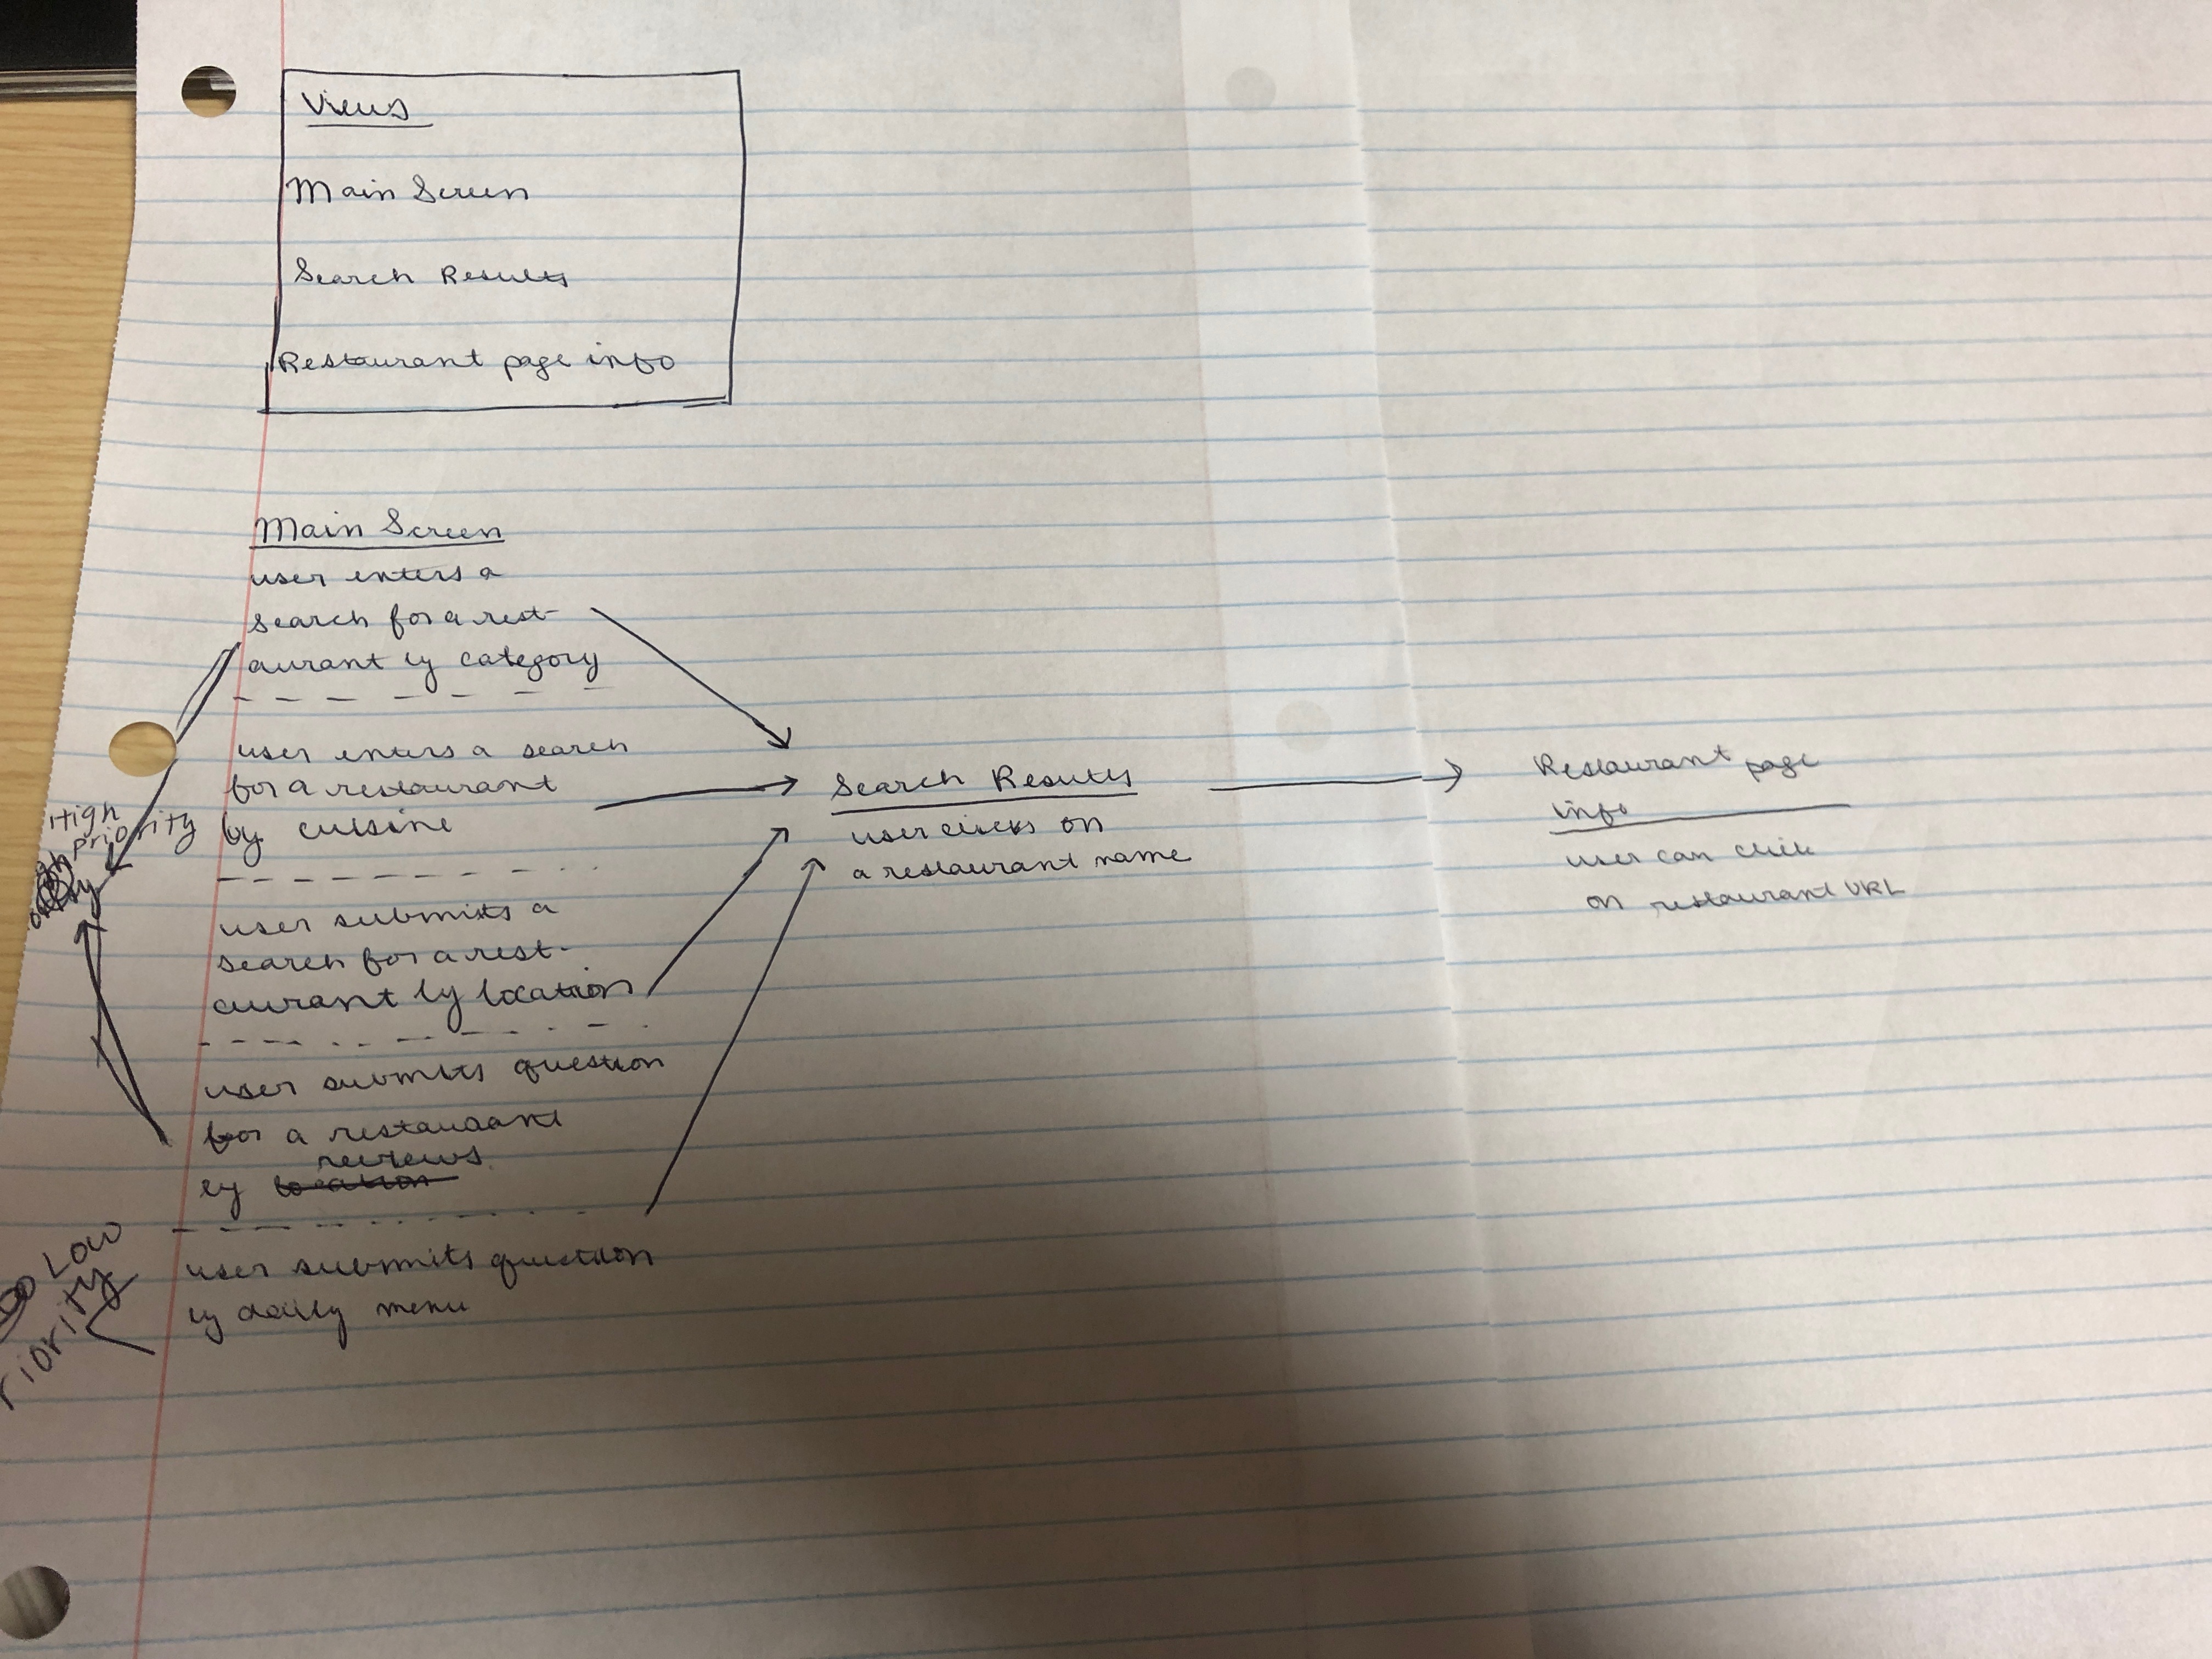 Views
Main Screen
Search Results
Restaurant page info
Main Screen
user enters a
search for a rest-
aurant by category
user enters a search
for a restaurant
by cuisine
user submits a
search for a rest-
aurant by location
user submits question
for a restaurant
reviews
by location
user submits question
by daily menu
High
priority
Low
Search Results
user clicks on
a restaurant name
Restaurant page
info
user can click
on restaurant URL